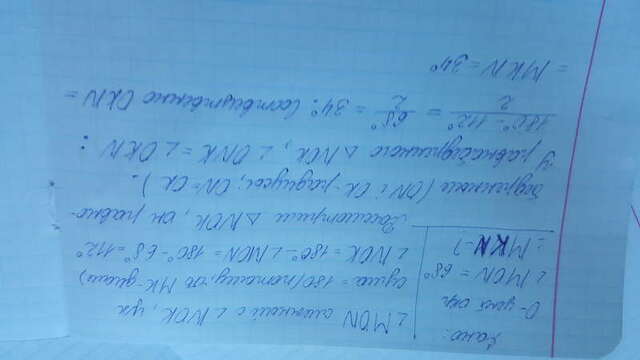 Дано:
О-центр окр
∠MON = 68°
∠MKN-?
∠MON смежный с ∠NOK, их
сумма = 180 (потому, что MK-диаметр)
∠NOK = 180° - ∠MON = 180° - 68° = 112°
Рассмотрим △NOK, он равно-
бедренный (ON и OK-радиусы, ON = OK).
У равнобедренного △NOK, ∠ONK = ∠OKN :
180° - 112° / 2 = 68° / 2 = 34°. Соответственно OKN =
= MKN = 34°